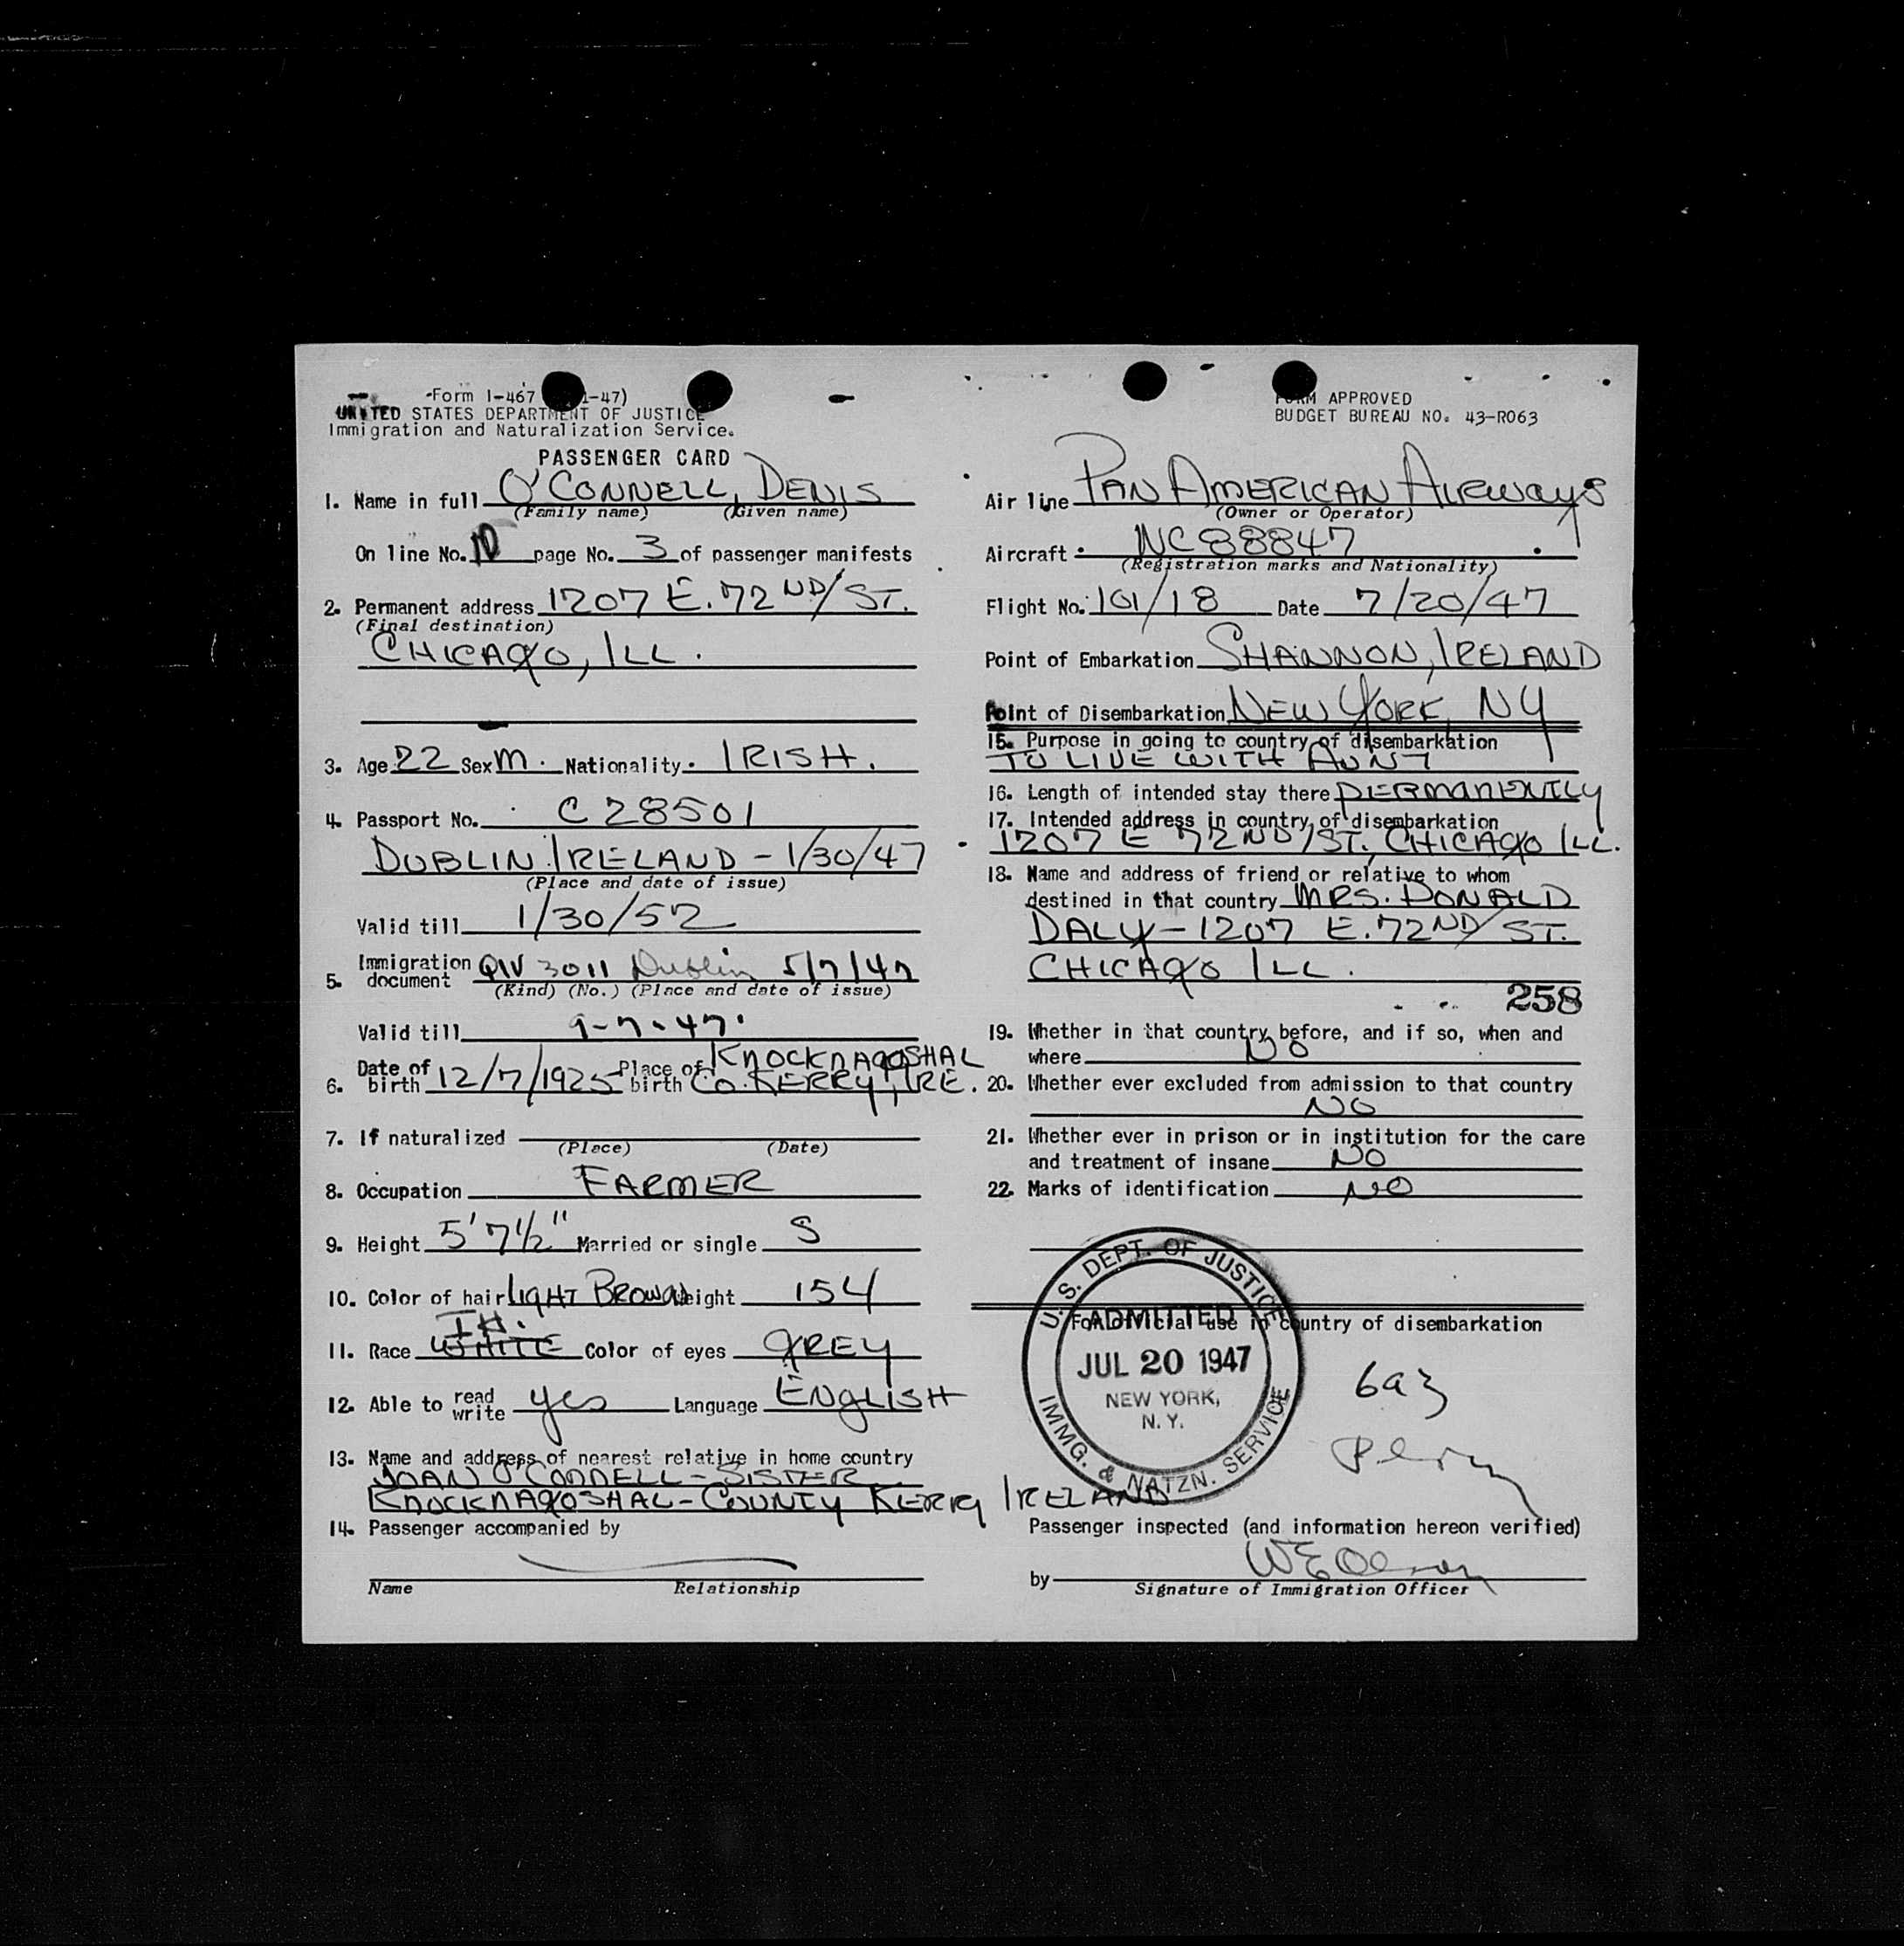 Form I-467 1-47)
UNITED STATES DEPARTMENT OF JUSTICE
Immigration and Naturalization Service.
PASSENGER CARD
1. Name in full O'CONNELL, DENIS
(Family name) (Given name)
On line No. 10 page No. 3 of passenger manifests
2. Permanent address 1207 E. 72ND/ST.
(Final destination)
CHICAGO, ILL.
3. Age 22 Sex M. Nationality IRISH.
4. Passport No. C 28501
DUBLIN IRELAND - 1/30/47
(Place and date of issue)
Valid till 1/30/52
5. Immigration document QIV 3011 Dublin 5/7/47
(Kind) (No.) (Place and date of issue)
Valid till 9-7-47
6. Date of birth 12/7/1925 Place of birth KNOCKNAGOSHAL
CO. KERRY, IRE.
7. If naturalized
(Place) (Date)
8. Occupation FARMER
9. Height 5' 7 1/2" Married or single S
10. Color of hair LIGHT BROWN Weight 154
IR.
11. Race WHITE Color of eyes GREY
12. Able to read write yes Language ENGLISH
13. Name and address of nearest relative in home country
JOAN O'CONNELL - SISTER
KNOCKNAGOSHAL - COUNTY KERRY IRELAND
14. Passenger accompanied by
Name Relationship
FORM APPROVED
BUDGET BUREAU NO. 43-R063
Air line PAN AMERICAN AIRWAYS
(Owner or Operator)
Aircraft NC88847
(Registration marks and Nationality)
Flight No. 101/18 Date 7/20/47
Point of Embarkation SHANNON, IRELAND
Point of Disembarkation NEW YORK, NY
15. Purpose in going to country of disembarkation
TO LIVE WITH AUNT
16. Length of intended stay there PERMANENTLY
17. Intended address in country of disembarkation
1207 E 72ND/ST., CHICAGO ILL.
18. Name and address of friend or relative to whom
destined in that country MRS. DONALD
DALY - 1207 E. 72ND/ ST.
CHICAGO ILL.
258
19. Whether in that country before, and if so, when and
where NO
20. Whether ever excluded from admission to that country
NO
21. Whether ever in prison or in institution for the care
and treatment of insane NO
22. Marks of identification NO
For official use in country of disembarkation
U. S. DEPT. OF JUSTICE
ADMITTED
JUL 20 1947
NEW YORK,
N. Y.
IMMG. & NATZN. SERVICE
6a3
Passenger inspected (and information hereon verified)
by W E Olson
Signature of Immigration Officer